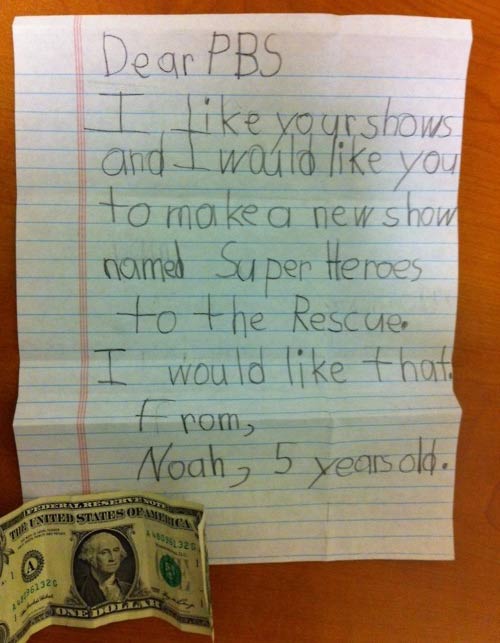 Dear PBS
I like your shows
and I would like you
to make a new show
named Super Heroes
to the Rescue.
I would like that.
From,
Noah, 5 years old.
FEDERAL RESERVE NOTE
THE UNITED STATES OF AMERICA
A
1
1
ONE DOLLAR